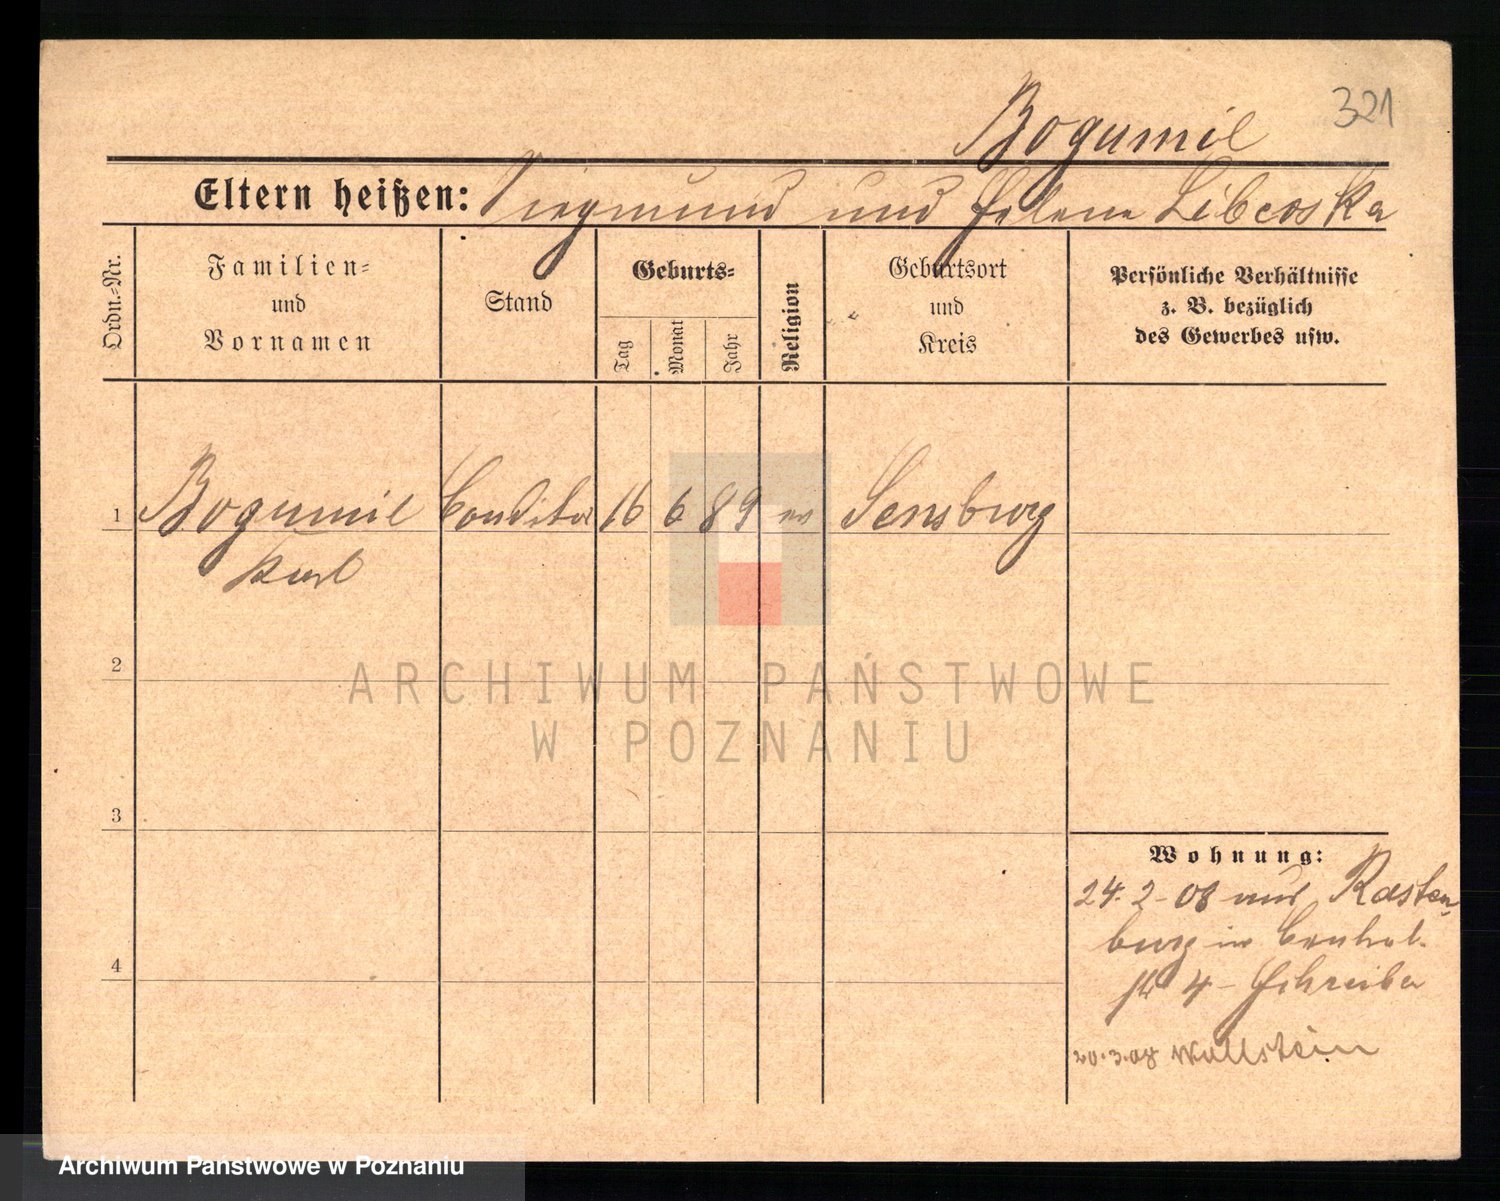 321
Bogumil
Eltern heißen: Siegmund und Helene Libcoska
Ordn.-Nr.
Familien-
und
Vornamen
Stand
Geburts-
Tag
Monat
Jahr
Religion
Geburtsort
und
Kreis
Persönliche Verhältnisse
z. B. bezüglich
des Gewerbes usw.
1 Bogumil Conditor 16 6 89 ev Sensburg
Kurl
2
3
4
Wohnung:
24.2-08 aus Rasten-
burg in Central-
4 - Schreiber
20.3.08 Wollstein
ARCHIWUM PAŃSTWOWE
W POZNANIU
Archiwum Państwowe w Poznaniu